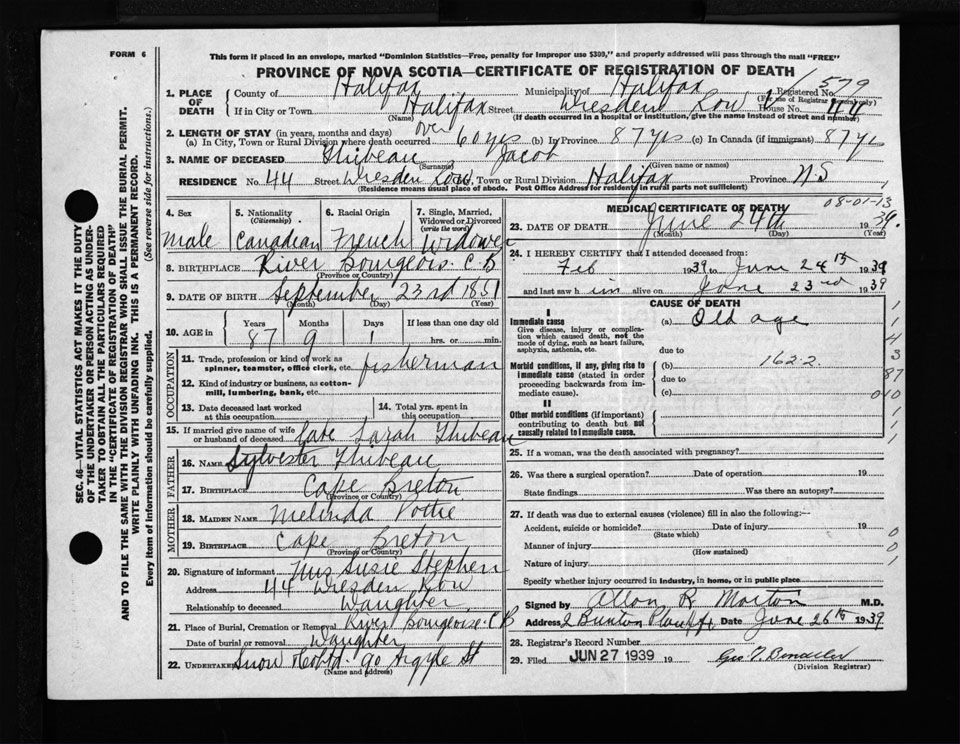 FORM 6
This form if placed in an envelope, marked "Dominion Statistics—Free, penalty for improper use $300," and properly addressed will pass through the mail "FREE"
PROVINCE OF NOVA SCOTIA—CERTIFICATE OF REGISTRATION OF DEATH
1. PLACE OF DEATH County of Halifax Municipality of Halifax Registered No. 579
(For use of Registrar General only)
If in City or Town Halifax Street Dresden Row House No. 44
(Name) (If death occurred in a hospital or institution, give the name instead of street and number)
2. LENGTH OF STAY (in years, months and days)
(a) In City, Town or Rural Division where death occurred over 60 yrs (b) In Province 87 yrs (c) In Canada (if immigrant) 87 yrs
3. NAME OF DECEASED Thibeau Jacob
(Surname) (Given name or names)
RESIDENCE No. 44 Street Dresden Row City, Town or Rural Division Halifax Province N.S
(Residence means usual place of abode. Post Office Address for residents in rural parts not sufficient)
4. Sex male
5. Nationality (Citizenship) Canadian
6. Racial Origin French
7. Single, Married, Widowed or Divorced (write the word) Widower
8. BIRTHPLACE River Bourgeois. C.B
(Province or Country)
9. DATE OF BIRTH September 23rd 1851
(Month) (Day) (Year)
10. AGE in Years Months Days If less than one day old
87 9 1 hrs. or min.
OCCUPATION
11. Trade, profession or kind of work as spinner, teamster, office clerk, etc. fisherman
12. Kind of industry or business, as cotton-mill, lumbering, bank, etc.
13. Date deceased last worked at this occupation
14. Total yrs. spent in this occupation
15. If married give name of wife or husband of deceased Late Sarah Thibeau
FATHER
16. NAME Sylvester Thibeau
17. BIRTHPLACE Cape Breton
(Province or Country)
MOTHER
18. MAIDEN NAME Melinda Pottie
19. BIRTHPLACE Cape Breton
(Province or Country)
20. Signature of informant Mrs Susie Stephen
Address 44 Dresden Row
Relationship to deceased Daughter
21. Place of Burial, Cremation or Removal River Bourgeoise. C.B
Date of burial or removal Daughter
22. UNDERTAKER Snow & Co Ltd. 90 Argyle St
(Name and address)
08-01-13
MEDICAL CERTIFICATE OF DEATH
23. DATE OF DEATH June 24th 1939.
(Month) (Day) (Year)
24. I HEREBY CERTIFY that I attended deceased from:
Feb 1939 to June 24th 1939
and last saw him alive on June 23rd 1939
CAUSE OF DEATH
I
Immediate cause (a) Old age
Give disease, injury or complication which caused death, not the mode of dying, such as heart failure, asphyxia, asthenia, etc.
due to
Morbid conditions, if any, giving rise to immediate cause (stated in order proceeding backwards from immediate cause). (b) 162.2.
due to
(c)
II
Other morbid conditions (if important) contributing to death but not causally related to immediate cause.
1
1
4
3
87
010
1
1
1
25. If a woman, was the death associated with pregnancy?
26. Was there a surgical operation? Date of operation 19
State findings Was there an autopsy?
27. If death was due to external causes (violence) fill in also the following:—
Accident, suicide or homicide? Date of injury 19
(State which)
Manner of injury 0
(How sustained) 0
Nature of injury 1
Specify whether injury occurred in industry, in home, or in public place
Signed by Allon R. Morton M.D.
Address Date June 26th 1939
28. Registrar's Record Number
29. Filed JUN 27 1939 19
(Division Registrar)
SEC. 46—VITAL STATISTICS ACT MAKES IT THE DUTY OF THE UNDERTAKER OR PERSON ACTING AS UNDERTAKER TO OBTAIN ALL THE PARTICULARS REQUIRED IN THE "CERTIFICATE OF REGISTRATION OF DEATH"
AND TO FILE THE SAME WITH THE DIVISION REGISTRAR WHO SHALL ISSUE THE BURIAL PERMIT.
WRITE PLAINLY WITH UNFADING INK. THIS IS A PERMANENT RECORD.
Every item of information should be carefully supplied. (See reverse side for instructions.)